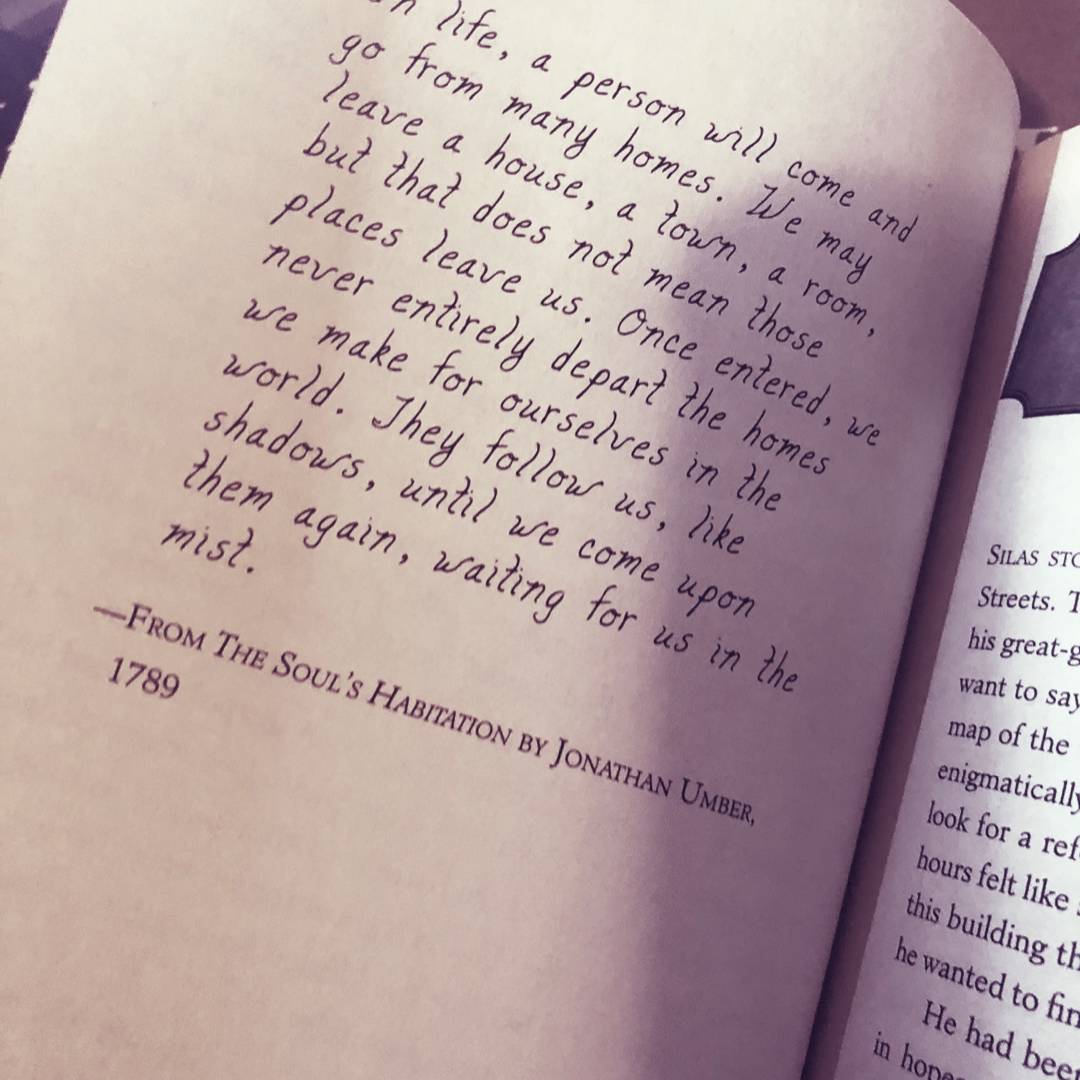 life, a person will come and
go from many homes. We may
leave a house, a town, a room,
but that does not mean those
places leave us. Once entered, we
never entirely depart the homes
we make for ourselves in the
world. They follow us, like
shadows, until we come upon
them again, waiting for us in the
mist.
—FROM THE SOUL'S HABITATION BY JONATHAN UMBER,
1789
SILAS
Streets.
his great-g
want to say
map of the
enigmatically
look for a ref
hours felt like
this building th
he wanted to fin
He had been
in hope